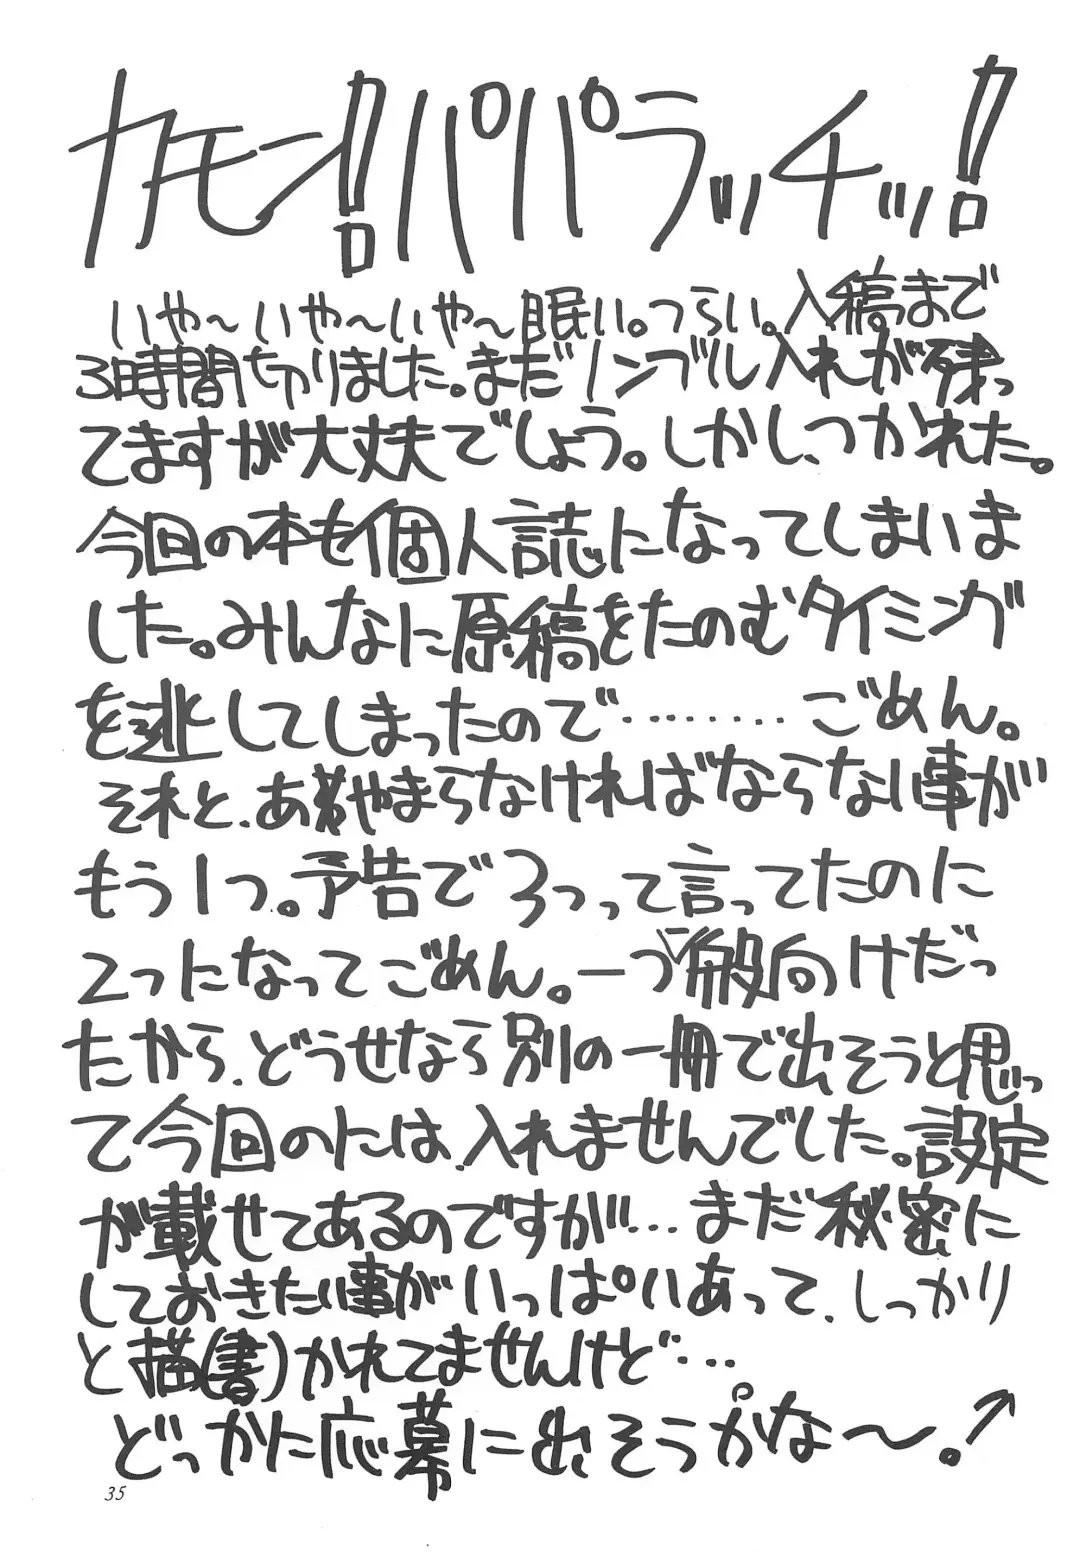 カモン!!パパラッチッ!!
いや〜いや〜いや〜眠い。つらい。入稿まで
3時間切りました。まだノンブル入れが残っ
てますが大丈夫でしょう。しかし、つかれた。
今回の本も個人誌になってしまいま
した。みんなに原稿をたのむタイミング
を逃してしまったので………ごめん。
それと、あやまらなければならない事が
もう1つ。予告で3つって言ってたのに
2つになってごめん。一つ般向けだっ
たから、どうせなら別の一冊で出そうと思っ
て今回のには、入れませんでした。設定
が載せてあるのですが…まだ秘密に
しておきたい事がいっぱいあって、しっかり
と描(書)かれてませんけど…
どっかに応募に出そうかな〜。↗
35